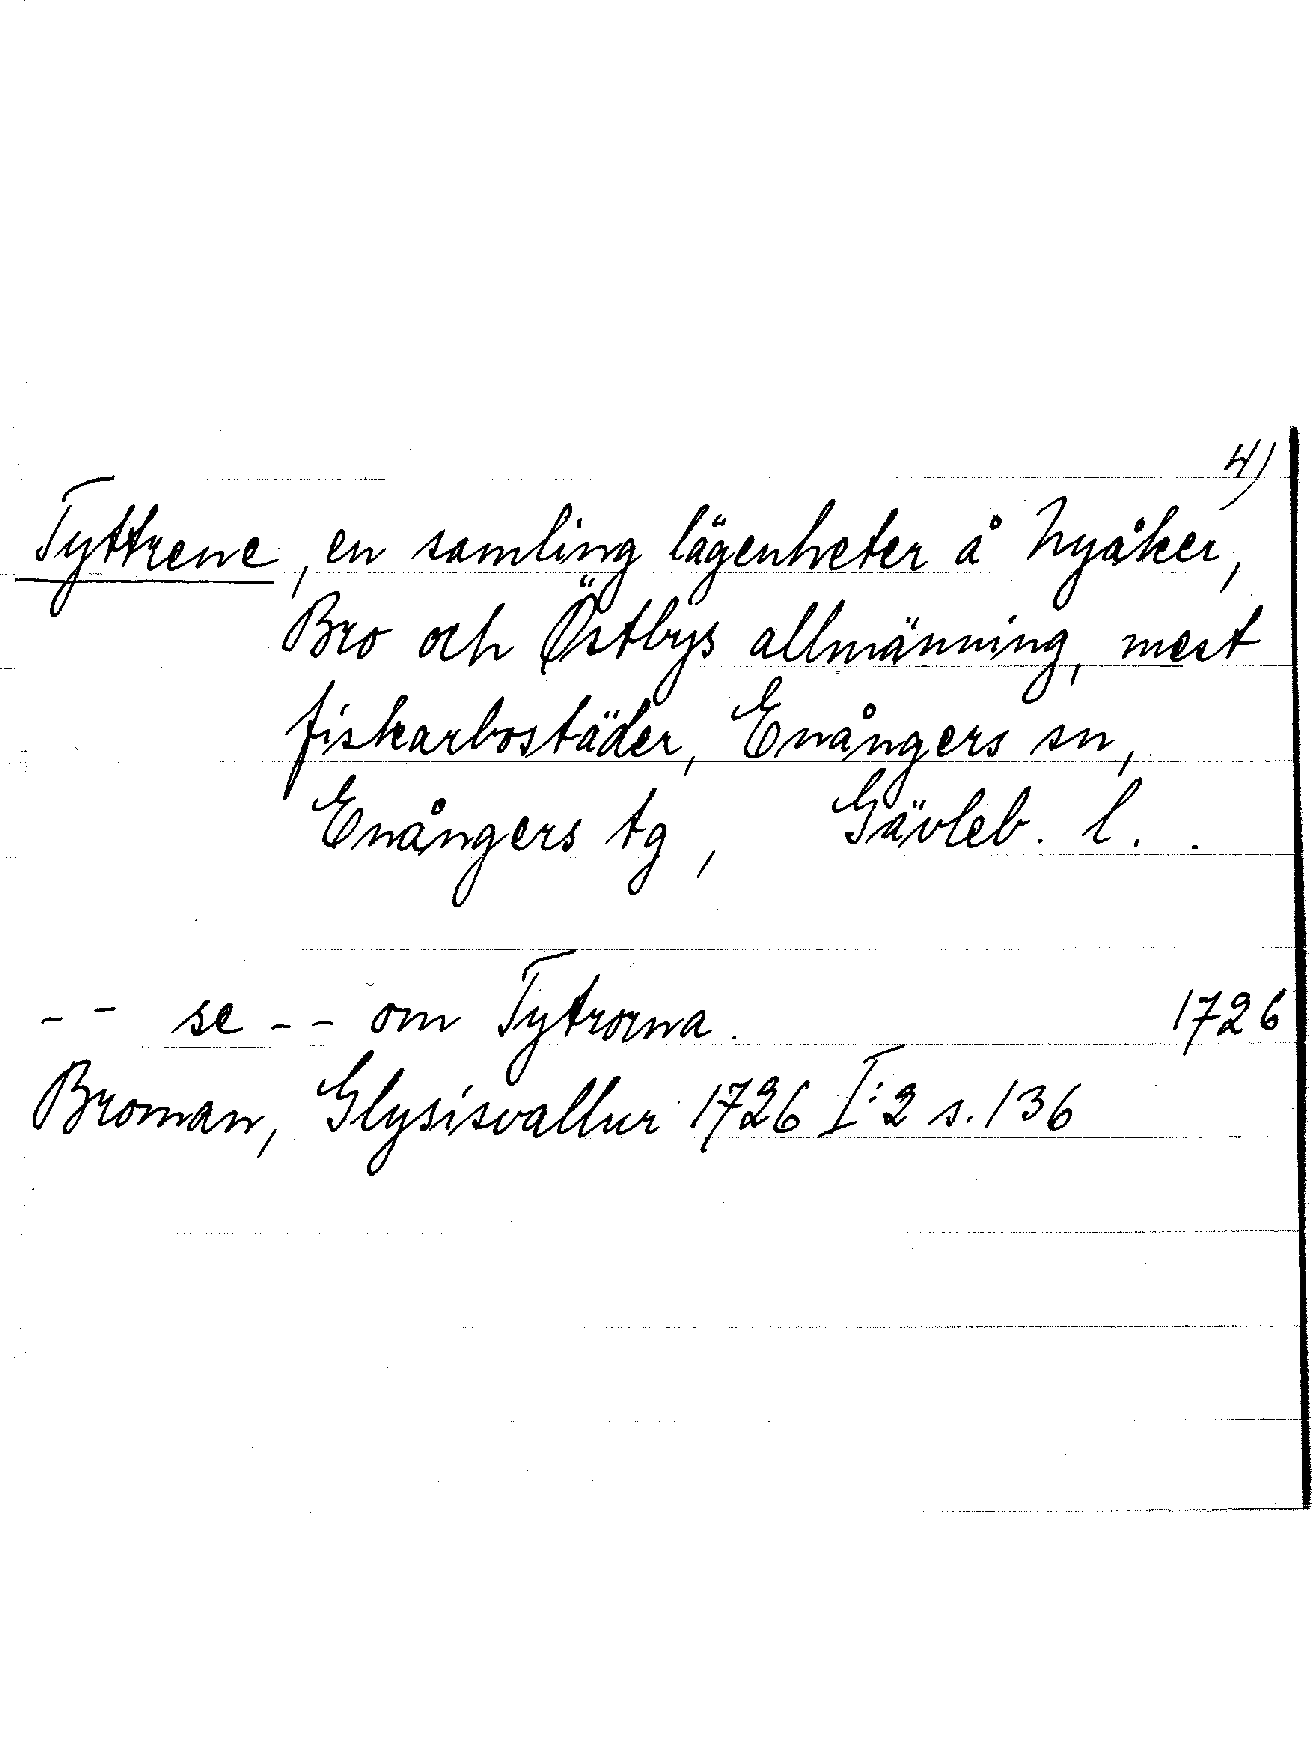 4)
Tyttrene, en samling lägenheter å Nyåker,
Bro och Östbys allmänning, mest
fiskarbostäder, Enångers sn,
Enångers tg, Gävleb. l.
-- se -- om Tytrorna. 1726
Broman, Glysisvallur 1726 I:2 s. 136